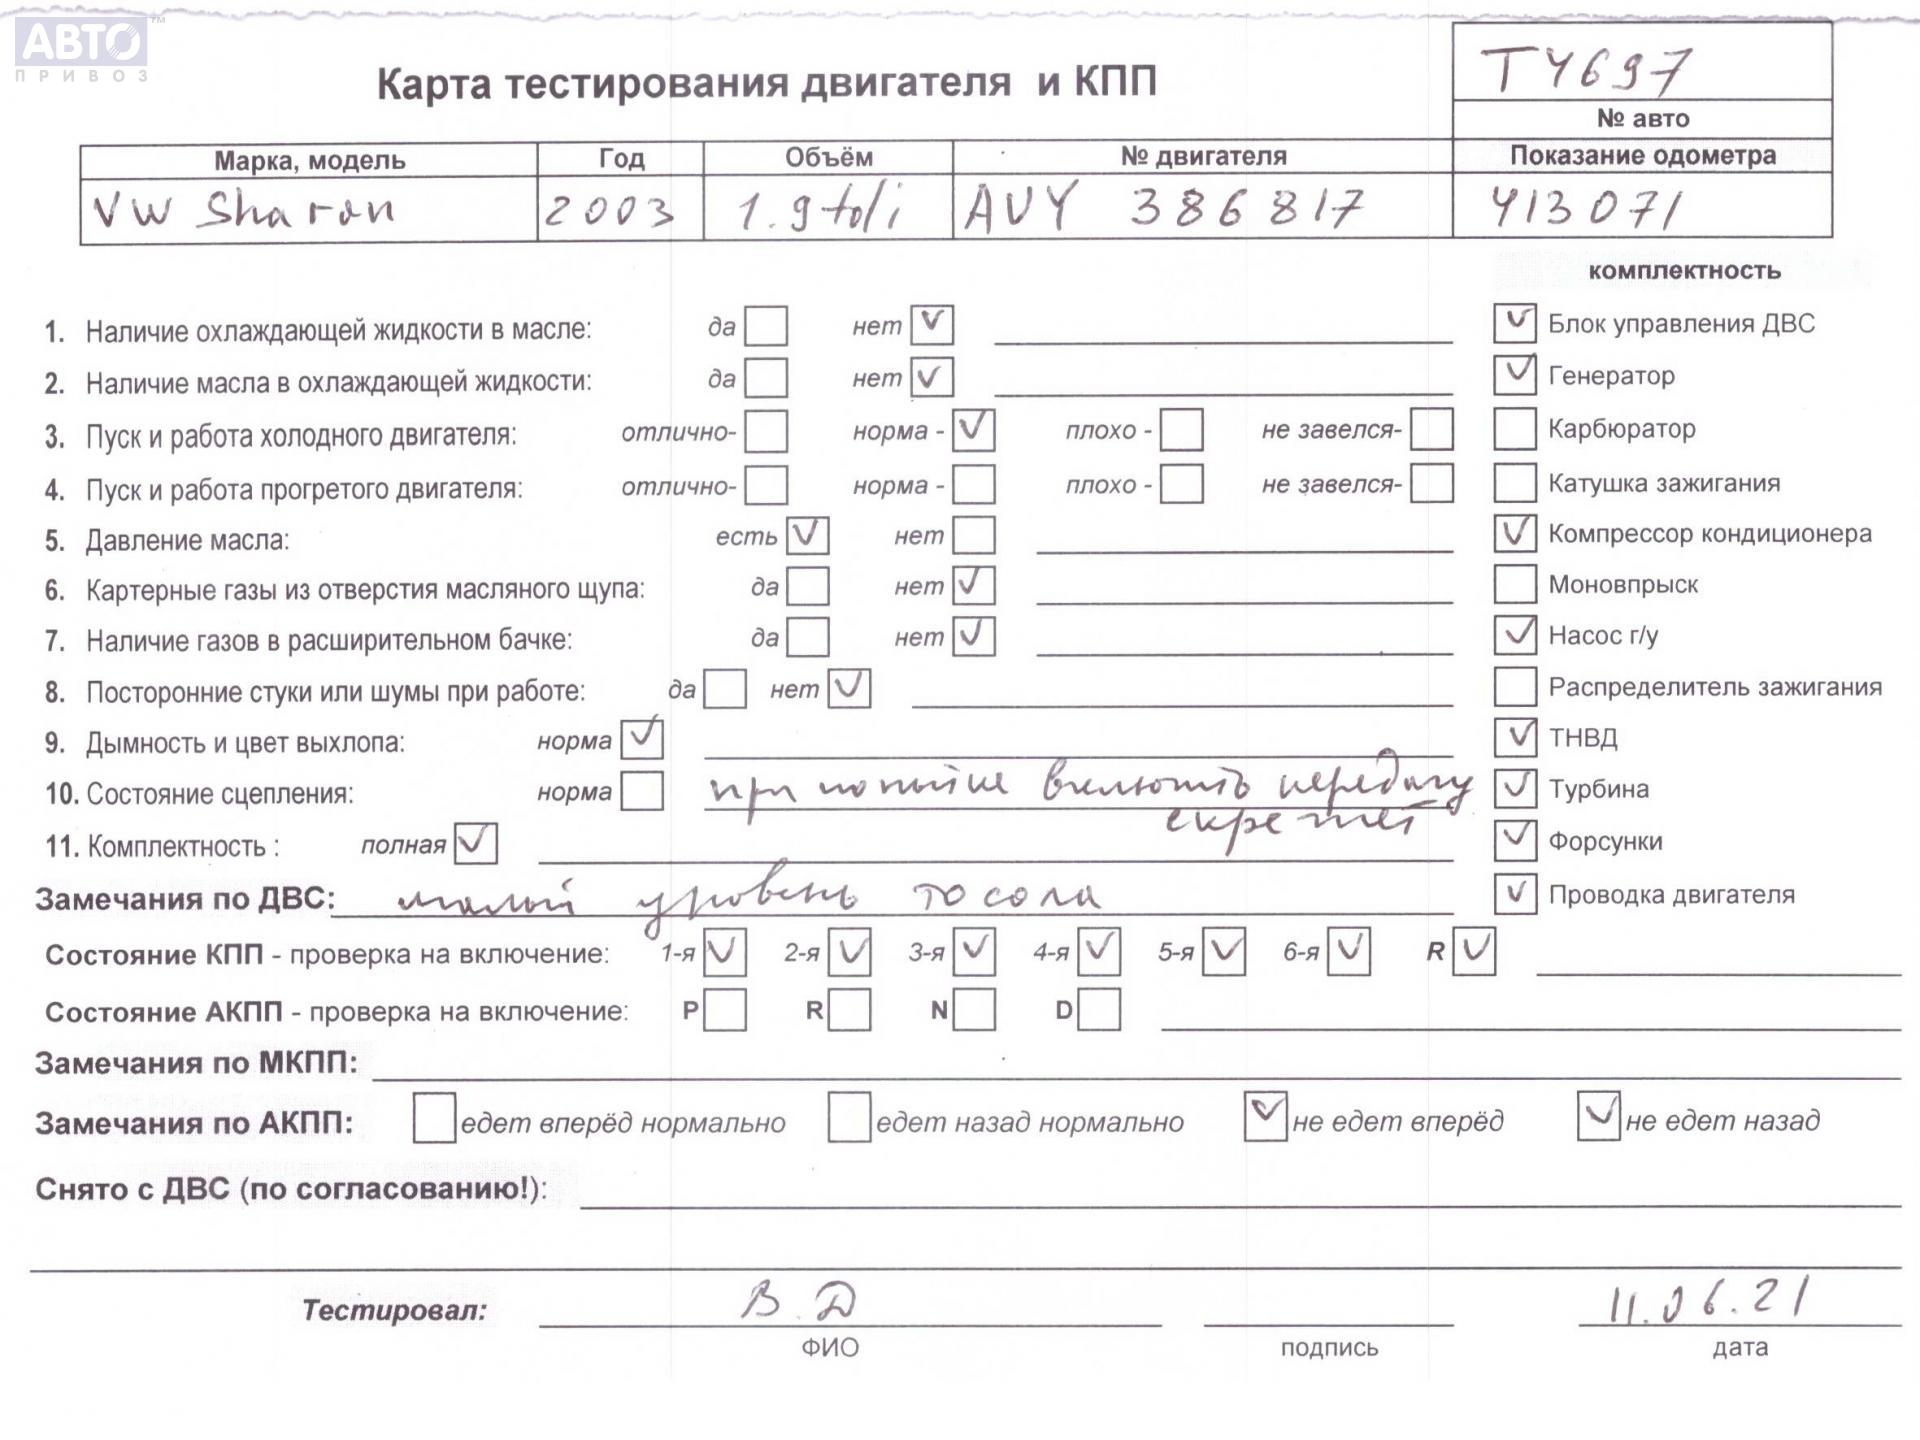 АВТО ™
ПРИВОЗ
Карта тестирования двигателя и КПП
T4697
№ авто
Марка, модель Год Объём № двигателя Показание одометра
VW Sharan 2003 1.9 tdi AUY 386817 413071
комплектность
1. Наличие охлаждающей жидкости в масле: да нет Блок управления ДВС
2. Наличие масла в охлаждающей жидкости: да нет Генератор
3. Пуск и работа холодного двигателя: отлично- норма - плохо - не завелся- Карбюратор
4. Пуск и работа прогретого двигателя: отлично- норма - плохо - не завелся- Катушка зажигания
5. Давление масла: есть нет Компрессор кондиционера
6. Картерные газы из отверстия масляного щупа: да нет Моновпрыск
7. Наличие газов в расширительном бачке: да нет Насос г/у
8. Посторонние стуки или шумы при работе: да нет Распределитель зажигания
9. Дымность и цвет выхлопа: норма ТНВД
10. Состояние сцепления: норма при попытке включить передачу Турбина
11. Комплектность : полная Форсунки
Замечания по ДВС: малый уровень тосола Проводка двигателя
Состояние КПП - проверка на включение: 1-я 2-я 3-я 4-я 5-я 6-я R
Состояние АКПП - проверка на включение: P R N D
Замечания по МКПП:
Замечания по АКПП: едет вперёд нормально едет назад нормально не едет вперёд не едет назад
Снято с ДВС (по согласованию!):
Тестировал: В.Д 11.06.21
ФИО подпись дата